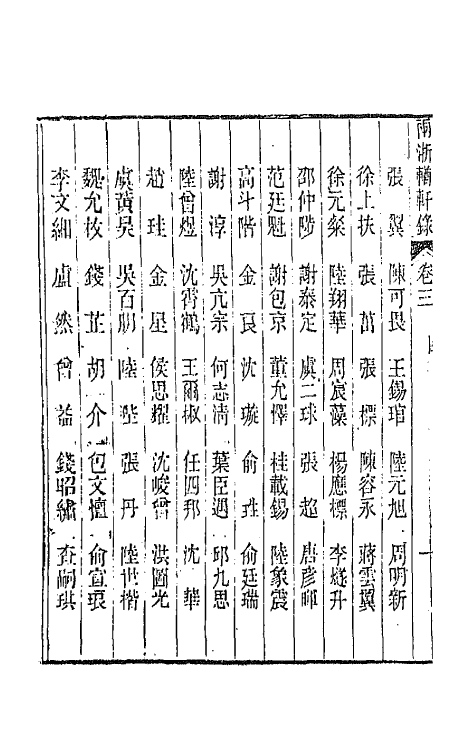 兩浙輶軒錄 卷三 目 一
張翼 陳可畏 王錫琯 陸元旭 周明新
徐上扶 張萬 張標 陳容永 蔣雲翼
徐元粲 陸翔華 周宸藻 楊應標 李燧升
邵仲陟 謝泰定 虞二球 張超 唐彥暉
范廷魁 謝包京 董允懌 桂載錫 陸象震
高斗階 金艮 沈璇 俞珄 俞廷瑞
謝淳 吳亢宗 何志淸 葉臣遇 邱九思
陸曾煜 沈霄鶴 王爾椒 任四邦 沈華
趙珪 金星 侯思耀 沈峻曾 洪圖光
虞黃吳 吳百朋 陸陛 張丹 陸世楷
魏允枚 錢芷 胡介 包文𢷬 俞宜琅
李文細 盧然 曾益 錢昭繡 査嗣琪